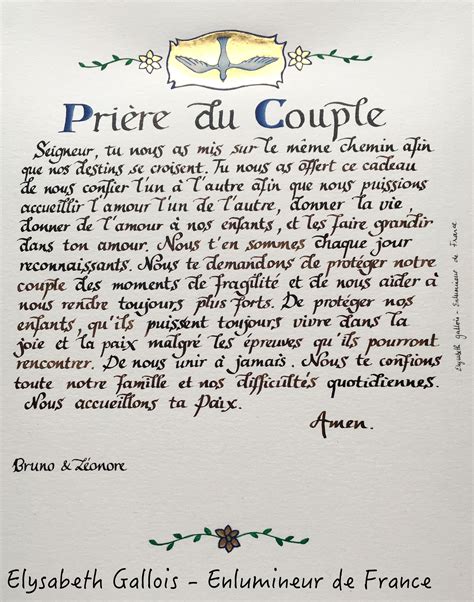 Prière du Couple
Seigneur, tu nous as mis sur le même chemin afin
que nos destins se croisent. Tu nous as offert ce cadeau
de nous confier l'un à l'autre afin que nous puissions
accueillir l'amour l'un de l'autre, donner la vie,
donner de l'amour à nos enfants, et les faire grandir
dans ton amour. Nous t'en sommes chaque jour
reconnaissants. Nous te demandons de protéger notre
couple des moments de fragilité et de nous aider à
nous rendre toujours plus forts. De protéger nos
enfants, qu'ils puissent toujours vivre dans la
joie et la paix malgré les épreuves qu'ils pourront
rencontrer. De nous unir à jamais. Nous te confions
toute notre famille et nos difficultés quotidiennes.
Nous accueillons ta Paix.
Amen.
Elysabeth Gallois - Enlumineur de France
Bruno & Léonore
Elysabeth Gallois - Enlumineur de France